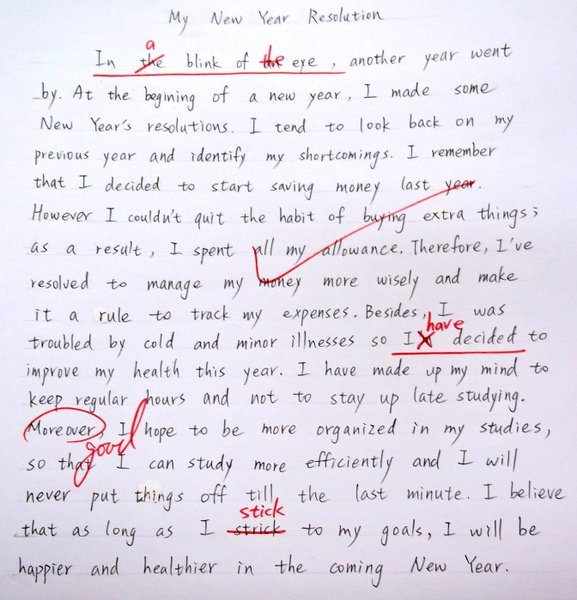 My New Year Resolution
a
In the blink of the eye, another year went
by. At the begining of a new year, I made some
New Year's resolutions. I tend to look back on my
previous year and identify my shortcomings. I remember
that I decided to start saving money last year.
However I couldn't quit the habit of buying extra things;
as a result, I spent all my allowance. Therefore, I've
resolved to manage my money more wisely and make
it a rule to track my expenses. Besides, I was
have
troubled by cold and minor illnesses so I decided to
improve my health this year. I have made up my mind to
keep regular hours and not to stay up late studying.
Moreover, I hope to be more organized in my studies,
good
so that I can study more efficiently and I will
never put things off till the last minute. I believe
stick
that as long as I strick to my goals, I will be
happier and healthier in the coming New Year.